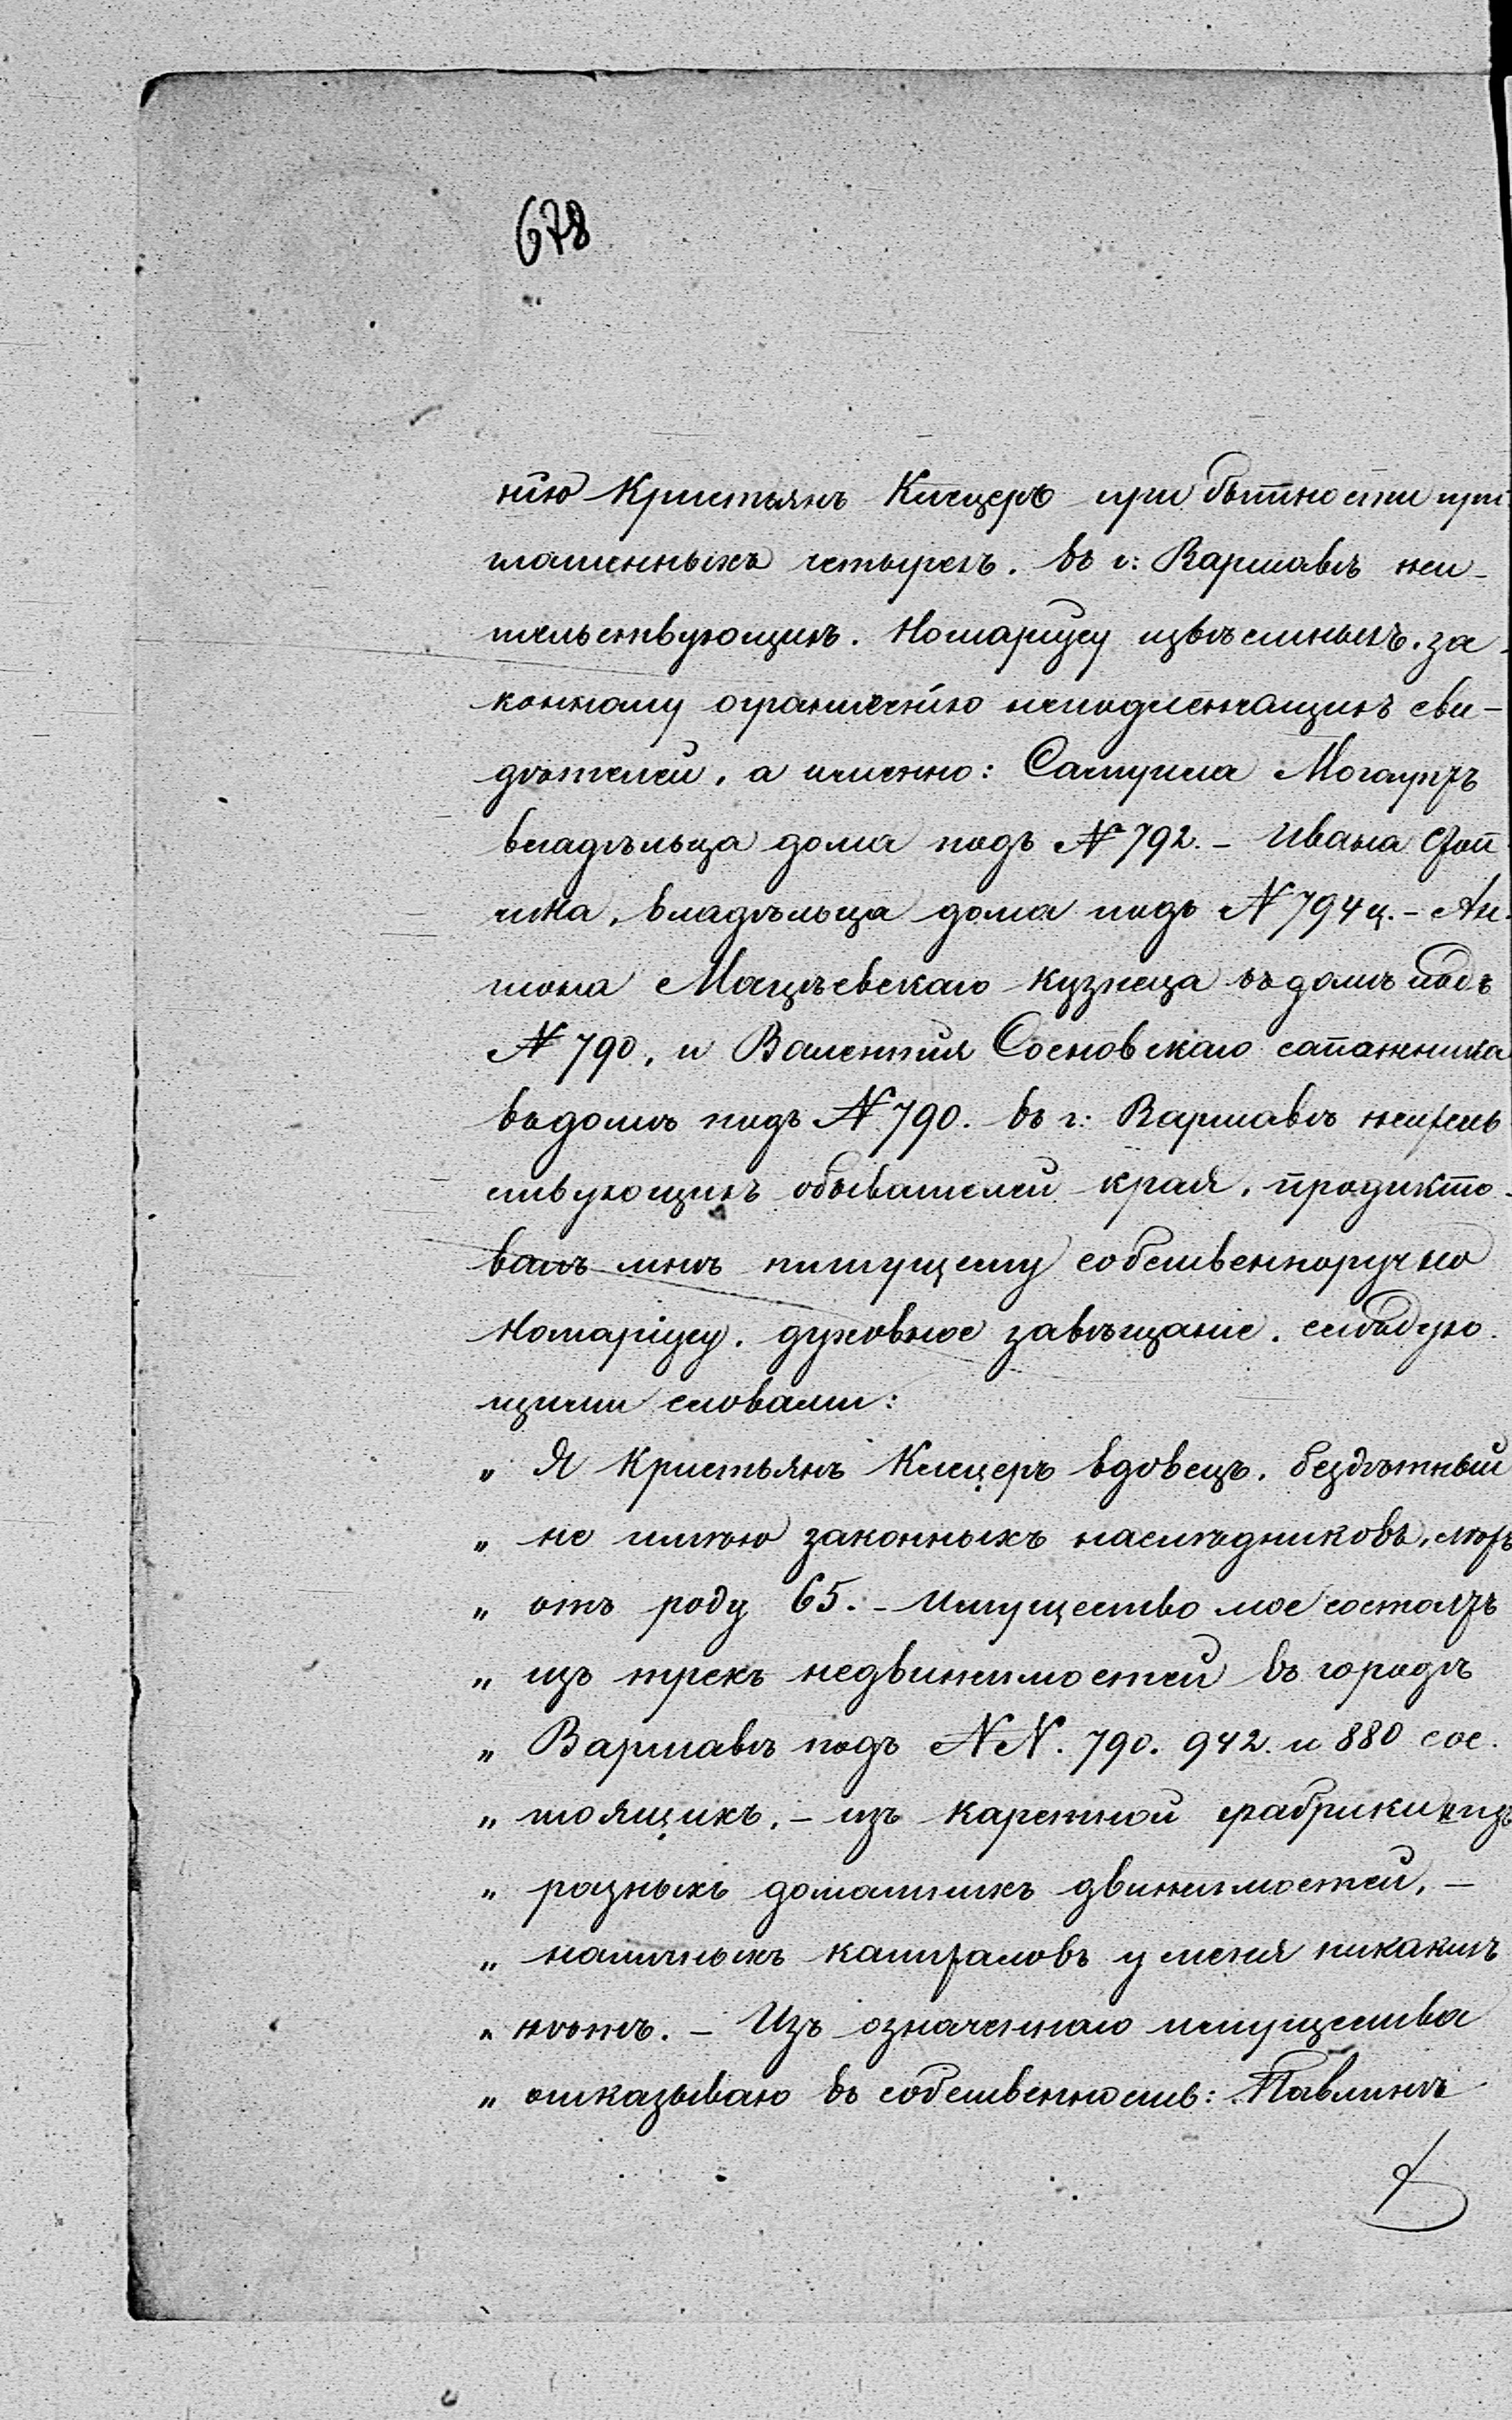 678
нію Кристьянъ Клицеръ при бытности при
глашенныхъ четырехъ. въ г: Варшавѣ жи-
тельствующихъ. Нотаріусу извѣстныхъ. за-
конному ограниченію неподлежащихъ сви-
дѣтелей, а именно: Самуила
владѣльца дома подъ № 792. – Ивана
владѣльца дома подъ № 794ц. – Ан-
тона Мацѣевскаго кузнеца въ домѣ подъ
№ 790, и Валентія Сосновскаго сапожника
въ домѣ подъ № 790. въ г: Варшавѣ житель
ствующихъ обывателей края, продикто-
валъ мнѣ пишущему собственноручно
Нотаріусу. духовное завѣщаніе. слѣдую-
щими словами:
„ Я Кристьянъ Клицеръ вдовецъ. бездѣтный
„ не имѣю законныхъ наслѣдниковъ,
„ отъ роду 65. – Имущество мое состоитъ
„ изъ трехъ недвижимостей въ городѣ
„ Варшавѣ подъ NN. 790. 942. и 880 сос.
„ тоящихъ. – изъ каретной фабрики и изъ
„ разныхъ домашнихъ движимостей, –
„ наличныхъ капиталовъ у меня никакихъ
„ нѣтъ. – Изъ означеннаго имущества
„ отказываю въ собственность: Павлинѣ